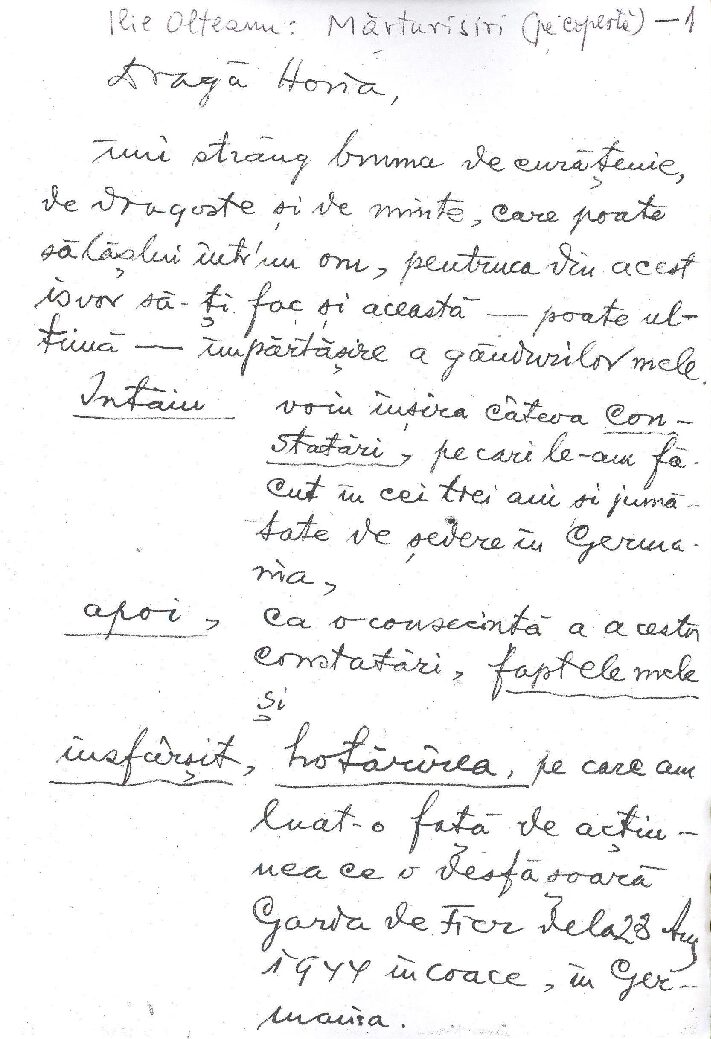 Ilie Olteanu: Mărturisiri (pe copertă) — 1
Dragă Horia,
îmi strâng bruma de curățenie,
de dragoste și de minte, care poate
sălășlui într'un om, pentruca din acest
isvor să-ți fac și această — poate ul-
timă — împărtășire a gândurilor mele.
Intâiu voiu înșira câteva con-
statări, pe cari le-am fă-
cut în cei trei ani si jumă-
tate de ședere în Germa-
nia,
apoi, ca o consecintă a acestor
constatări, faptele mele
și
însfârșit, hotărîrea, pe care am
luat-o față de acțiu-
nea ce o desfășoară
Garda de Fier dela 23 Aug
1944 încoace, în Ger-
mania.